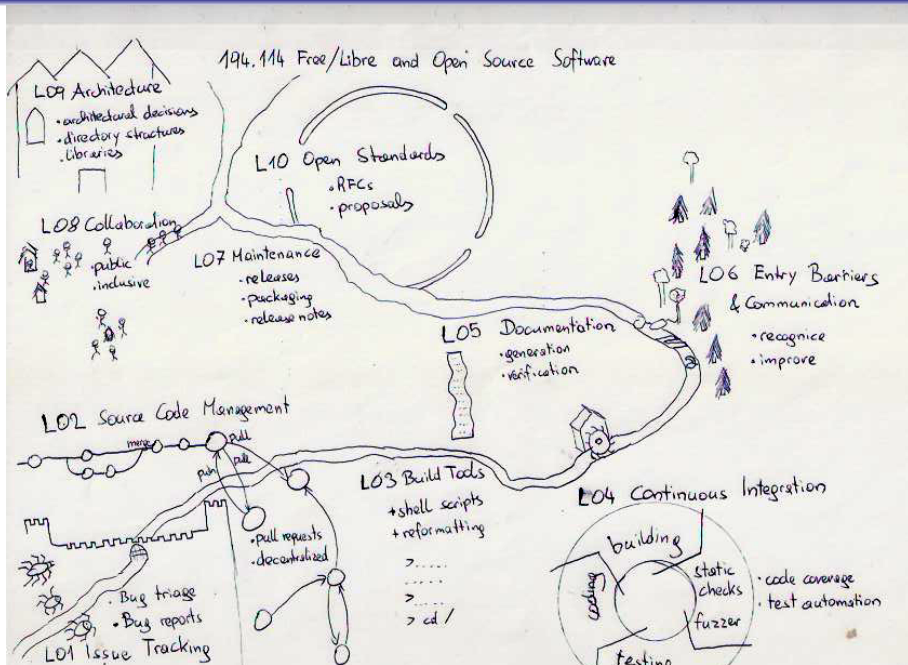 194.114 Free/Libre and Open Source Software
L09 Architecture
• architectural decisions
• directory structures
• libraries
L10 Open Standards
• RFCs
• proposals
L08 Collaboration
• public
• inclusive
L07 Maintenance
• releases
• packaging
• release notes
L06 Entry Barriers
& Communication
• recognice
• improve
L05 Documentation
• generation
• verification
L02 Source Code Management
merge
pull
pull
push
• pull requests
• decentralized
L03 Build Tools
+ shell scripts
+ reformatting
>.....
.....
>.....
> cd /
L04 Continuous Integration
building
coding
static
checks
fuzzer
testing
• code coverage
• test automation
• Bug triage
• Bug reports
L01 Issue Tracking